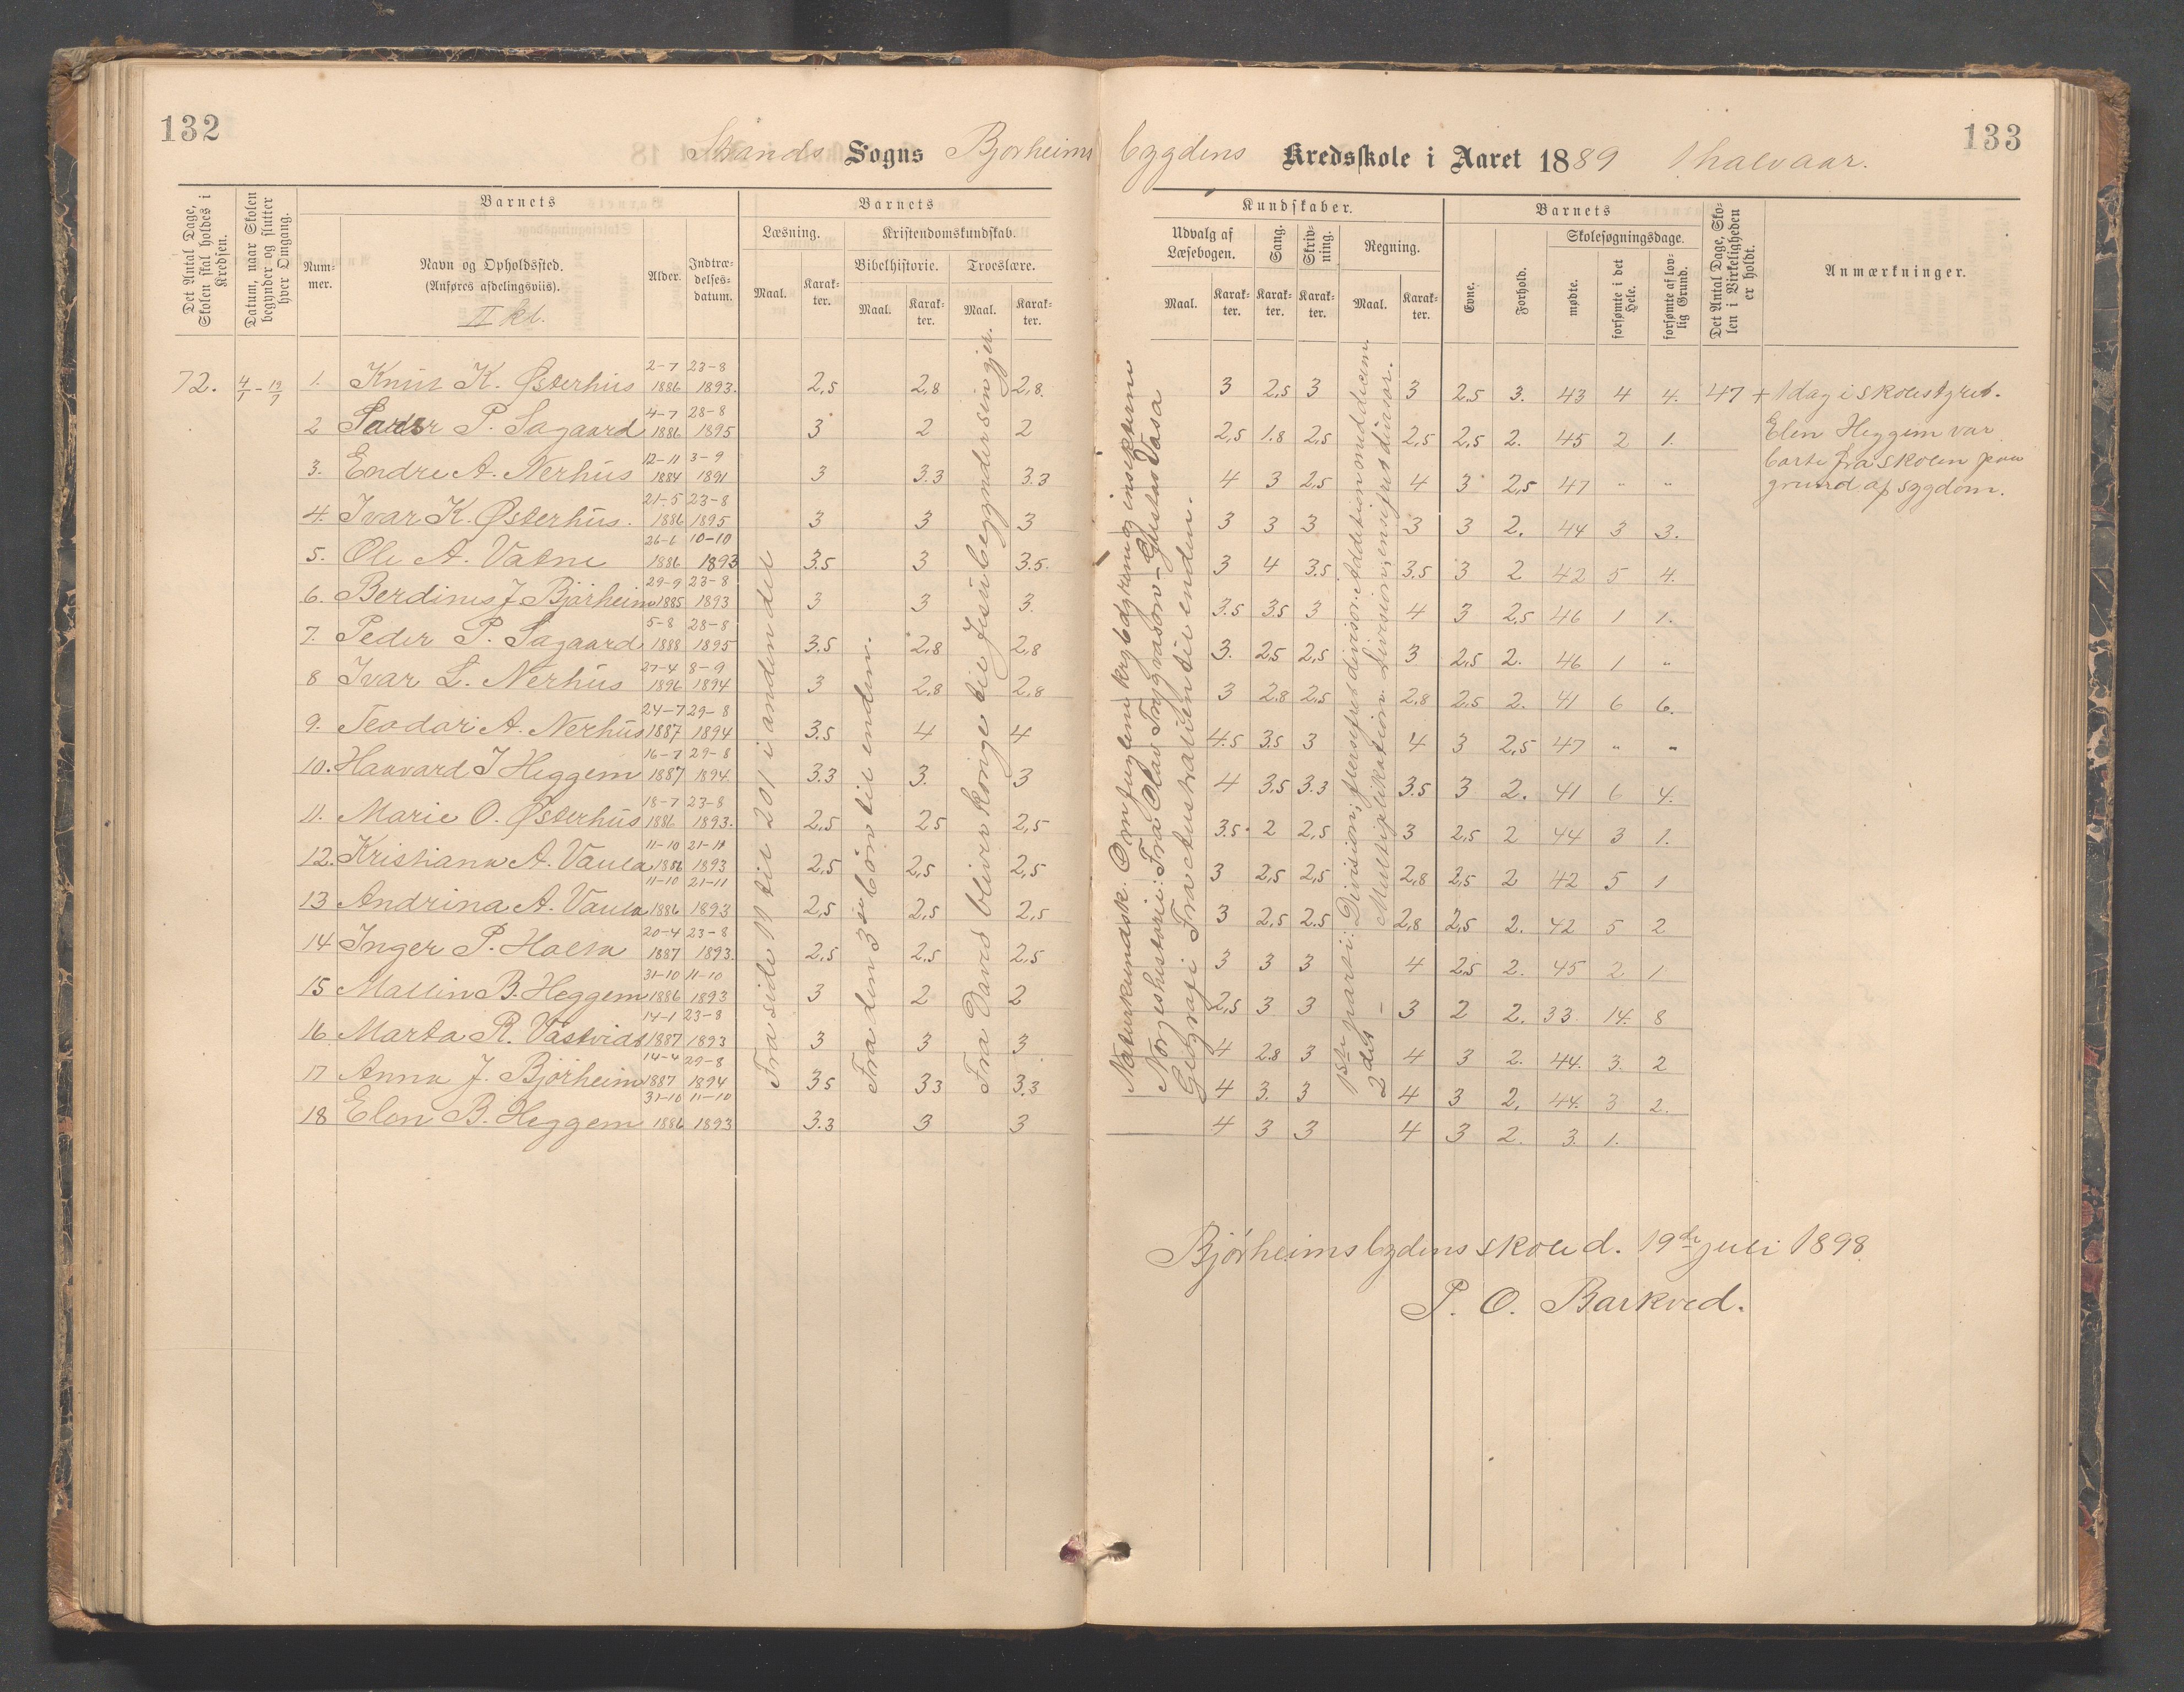 132
133
Strands Sogns Bjørheims bygdens Kredsskole i Aaret 1889 1 halvaar.
Det Antal Dage, Skolen skal holdes i Kredsen.
Datum, naar Skolen begynder og slutter hver Omgang.
Barnets
Nummer.
Navn og Opholdssted.
(Anføres afdelingsviis).
II kl.
Alder.
Indtrædelsesdatum.
Barnets
Læsning.
Maal.
Karakter.
Kristendomskundskab.
Bibelhistorie.
Maal.
Karakter.
Troeslære.
Maal.
Karakter.
Kundskaber.
Udvalg af Læsebogen.
Maal.
Karakter.
Sang.
Karakter.
Skrivning.
Karakter.
Regning.
Maal.
Karakter.
Barnets
Evne.
Forhold.
Skolesøgningsdage.
mødte.
forsømte i det Hele.
forsømte af lovlig Grund.
Det Antal Dage, Skolen i Virkeligheden er holdt.
Anmærkninger.
72. 4/1 - 19/7 1. Knut K. Østerhus 2-7 1886 23-8 1893. 2,5 2,8 2,8. 3 2,5 3 3 2,5 3. 43 4 4. 47 + 1 dag i skolestyret.
2 Peder P. Sagaard 4-7 1886 28-8 1895 3 2 2 2,5 1.8 2,5 2,5 2,5 2. 45 2 1.
3. Endre A. Nerhus 12-11 1884 3-9 1891 3 3.3 3.3 4 3 2,5 4 3 2,5 47 " "
4. Ivar K. Østerhus. 21-5 1886 23-8 1895 3 3 3 3 3 3 3 3 2. 44 3 3.
5. Ole A. Vatne 26-6 1886 10-10 1893 3.5 3 3.5. 3 4 3.5 3.5 3 2 42 5 4.
6. Berdines J. Bjørheim 29-9 1885 23-8 1893 3 3 3. 3.5 3.5 3 4 3 2,5 46 1 1.
7. Peder P. Sagaard 5-8 1888 28-8 1895 3.5 2,8 2,8 3. 2,5 2,5 3 2,5 2. 46 1 "
8 Ivar L. Nerhus 27-4 1896 8-9 1894 3 2.8 2.8 3 2.8 2,5 2,8 2,5 2. 41 6 6.
9. Teodor A. Nerhus 24-7 1887 29-8 1894 3.5 4 4 4.5 3.5 3 4 3 2,5 47 " "
10. Haavard I Heggem 16-7 1887 29-8 1894. 3.3 3. 3 4 3.5 3.3 3.5 3 2. 41 6 4.
11. Marie O. Østerhus 18-7 1886 23-8 1893. 2,5 2,5 2,5 3.5. 2 2,5 3 2,5 2 44 3 1.
12. Kristiana A. Vaula 11-10 1886 21-11 1893 2,5 2,5 2,5 3 2,5 2,5 2,8 2,5 2 42 5 1
13 Andrina A. Vaula 11-10 1886 21-11 1893 2,5 2,5 2,5 3 2,5 2.5 2,8 2,5 2. 42 5 2
14 Inger P. Holta 20-4 1887 23-8 1893. 2,5 2,5 2,5 3 3 3 4 2,5 2. 45 2 1
15 Mallin B. Heggem 31-10 1886 11-10 1893 3 2 2 2,5 3 3 3 2 2. 33 14. 8
16 Marta R. Vastvidt 14-1 1887 23-8 1893 3 3 3 4 2.8 3 4 3 2. 44. 3. 2
17 Anna J. Bjørheim 14-4 1887 29-8 1894 3.5 3.3 3.3 4 3. 3 4 3 2. 44. 3 2.
18 Elen B. Heggem 31-10 1886 11-10 1893 3.3 3 3 4 3 3 4 3 2. 3. 1.
Elen Heggem var
borte fra skolen paa
grund af sygdom.
Fra side 11 til 201 i anden del
Fra den 3die bøn til enden.
Fra David bliver konge til Jesu begynder sin gjer.
Naturkundsk. Om fuglene krybdyrene og insekterne
Norgeshistorie: Fra Olav Trygvason - Gustav Vasa
Geografi Fra Australien til enden.
1ste parti: Division; flersifret divisor. Addition med decim.
2det - Multiplikation. Division; ensifret divisor.
Bjørheimsbygdens skole d. 19de juli 1898.
P. O. Barkved.